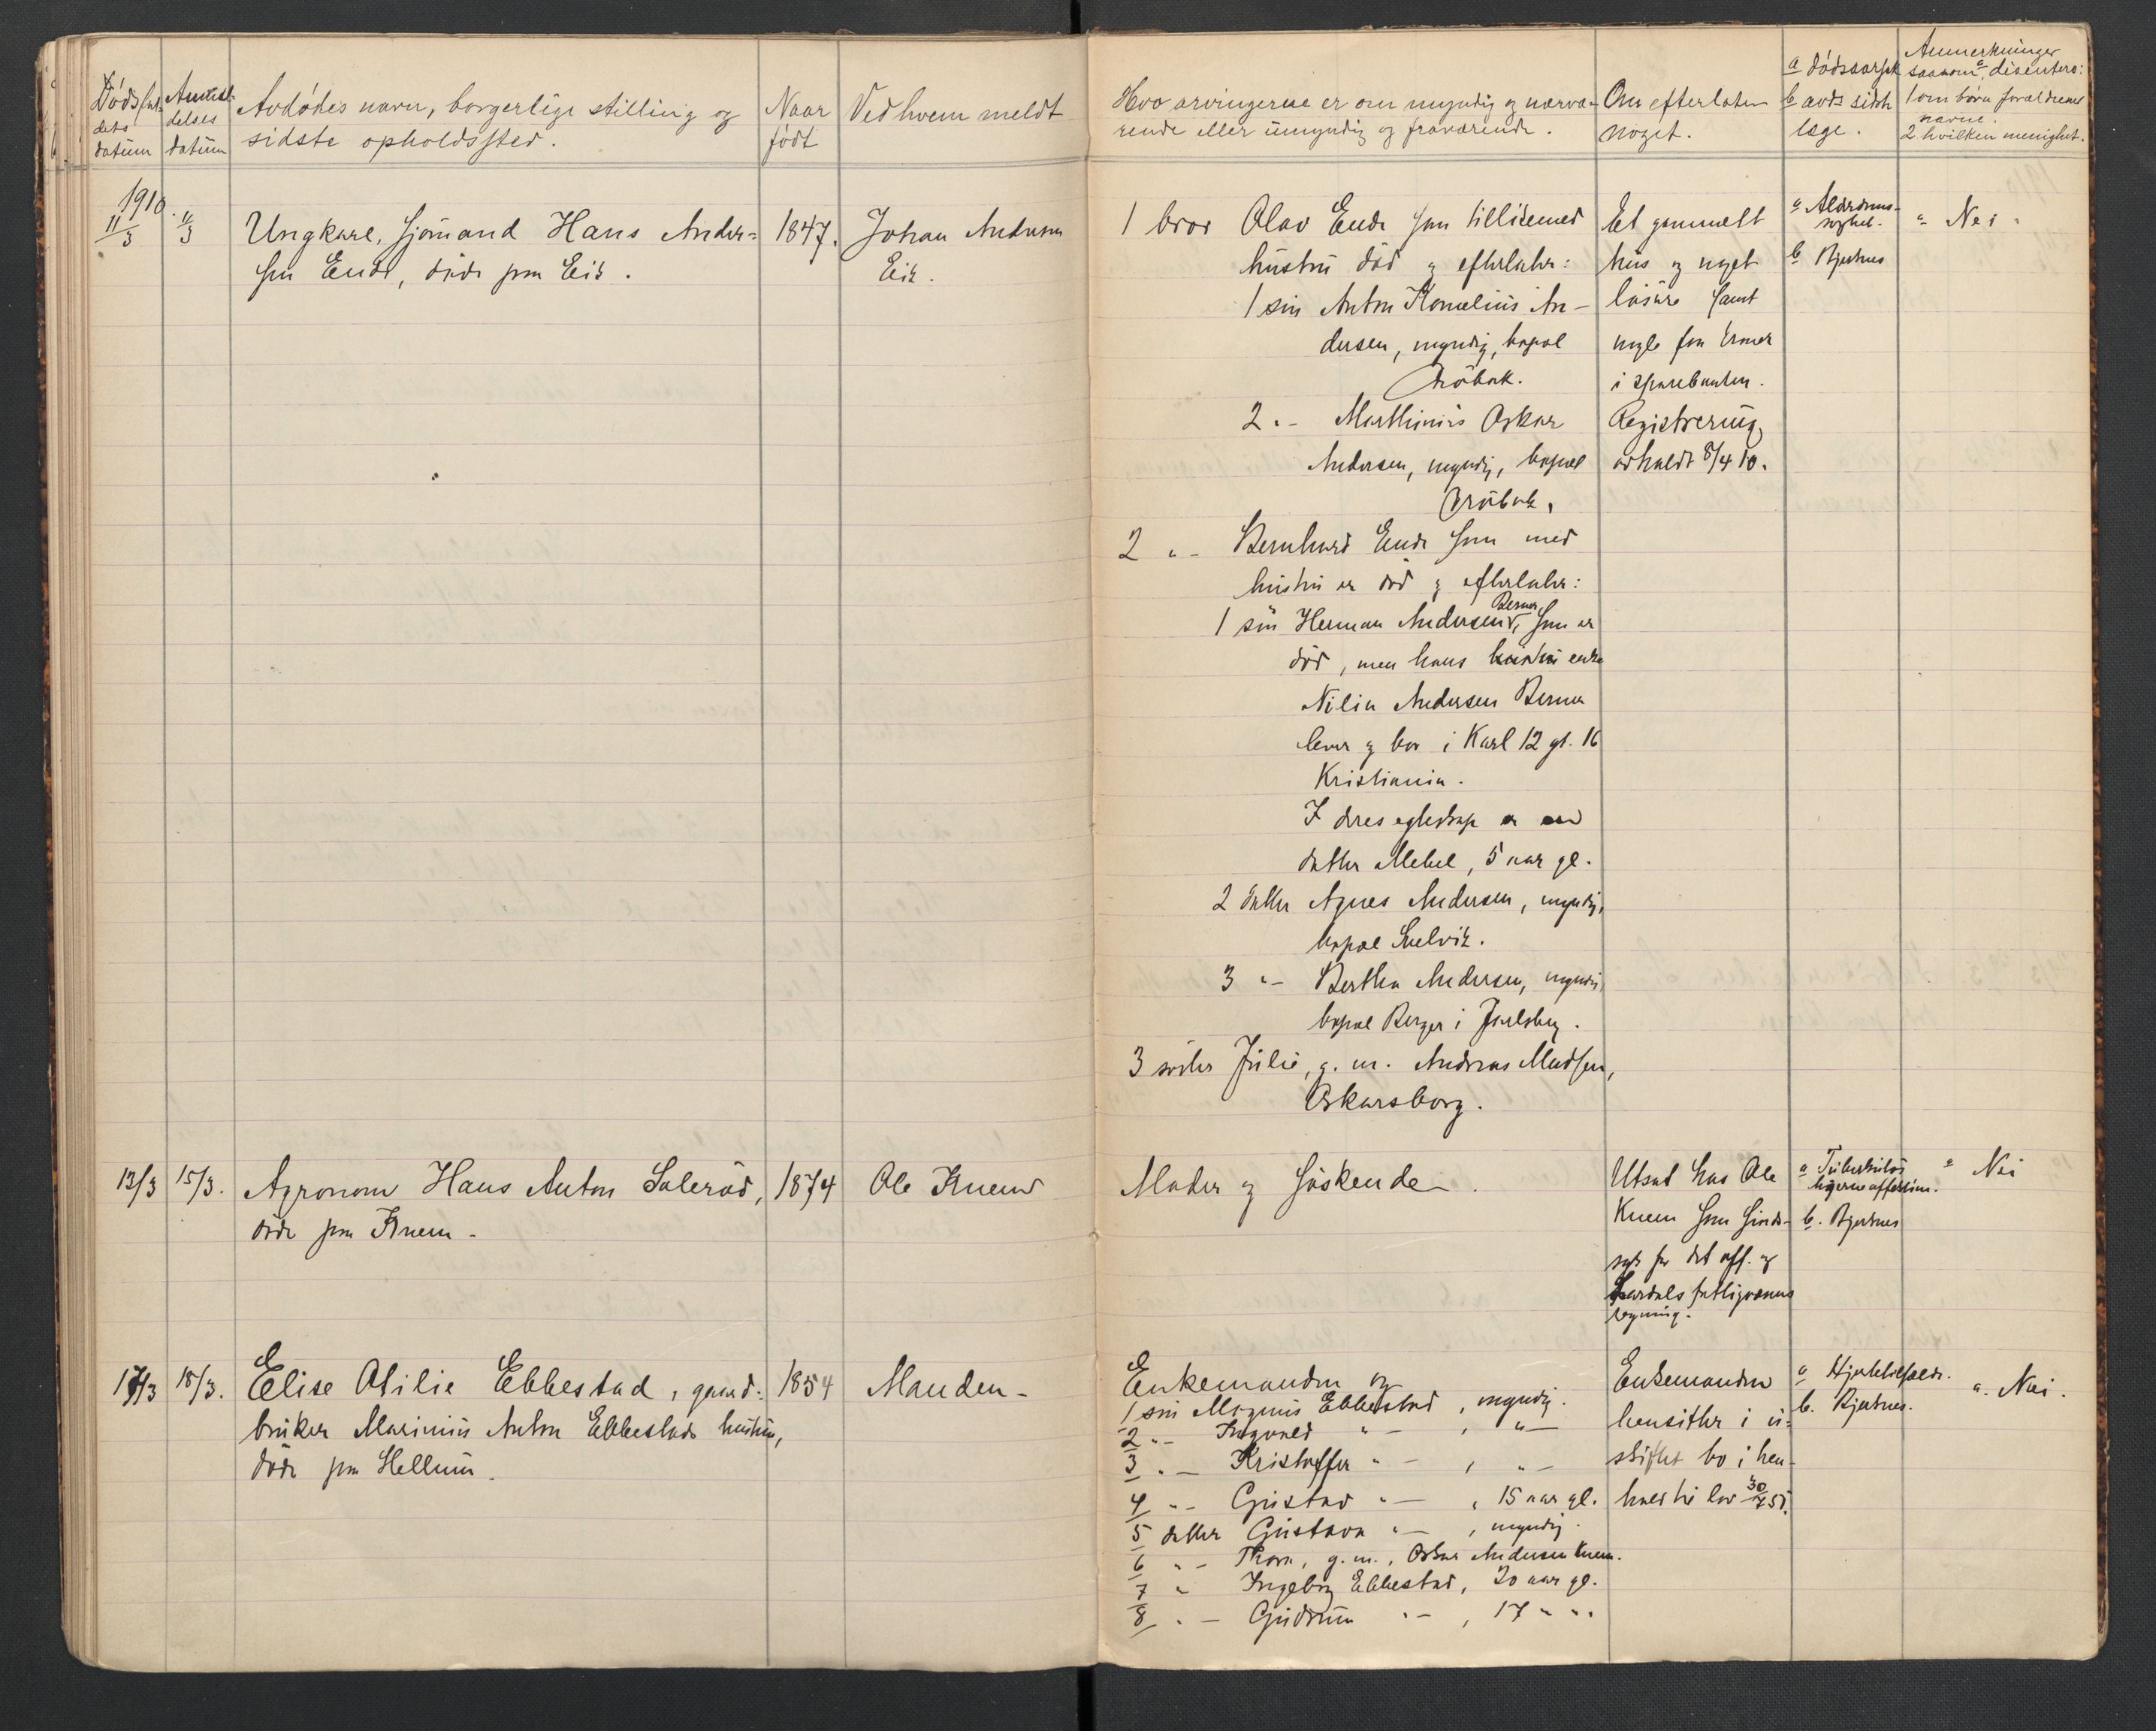 Dødsfal-
dets
datum
Anmel-
delses
datum
Avdødes navn, borgerlige stilling og
sidste opholdssted.
Naar
født
Ved hvem meldt
Hvo arvingerne er om myndig og nærvæ-
rende eller umyndig og fraværende.
Om efterlater
noget.
a dødsaarsak
b avds sidste
læge.
Anmerkninger
saasom a, disentere:
1 om børn forældrenes
navne.
2 hvilken menighet.
1910.
11/3
11/3
Ungkarl, sjømand Hans Ander-
sen Ende, døde paa Eik.
1847.
Johan Andersen
Eik.
1 bror Olav Ende som tillikemed
hustru død og efterlater:
1 søn Anton Kornelius An-
dersen, myndig, bopæl
Drøbak.
2 "- Marthinius Oskar
Andersen, myndig, bopæl
Drøbak,
2 "- Bernhard Ende som med
hustru er død og efterlater:
1 søn Herman Andersen Berner, som er
død, men hans hustru enke
Nilia Andersen Berner
lever og bor i Karl 12 gt. 16
Kristiania.
I deres egteskap er en
datter Mebel, 5 aar gl.
2 datter Agnes Andersen, myndig,
bopæl Svelvik.
3 "- Bertha Andersen, myndig
bopæl Berger i Jarlsberg.
3 søster Julie, g. m. Andreas Madsen,
Oskarsborg.
Et gammelt
hus og noget
løsøre samt
nogle faa kroner
i sparebanken.
Registrering
avholdt 8/4 10.
a Alderdoms-
svakhet.
b Bjertnes
a Nei.
13/3
15/3.
Agronom Hans Anton Solerød,
døde paa Knem.
1874
Ole Knem
Moder og søskende.
Utsat hos Ole
Knem som sinds-
syk for det off. og
fattigvæsens
regning.
a Tuberkuløs
hjerneaffektion.
b. Bjertnes
a Nei
17/3
18/3.
Elise Otilie Ebbestad, gaard-
bruker Marinius Anton Ebbestads hustru,
døde paa Hellum.
1854
Manden-
Enkemanden og
1 søn Magnus Ebbestad, myndig.
2 "- Ingvald "-, "-
3 "- Kristoffer "-, "-
4 "- Gustav "-, 15 aar gl.
5 datter Gustava "-, myndig.
6 "- Thora, g. m., Oskar Andersen Knem.
7 " Ingeborg Ebbestad, 20 aar gl.
8 "- Gudrun "-, 17 " "
Enkemanden
hensitter i u-
skiftet bo i hen-
hold til lov 30/7 51.
a Hjerteklapfeil.
b. Bjertnes.
a. Nei.